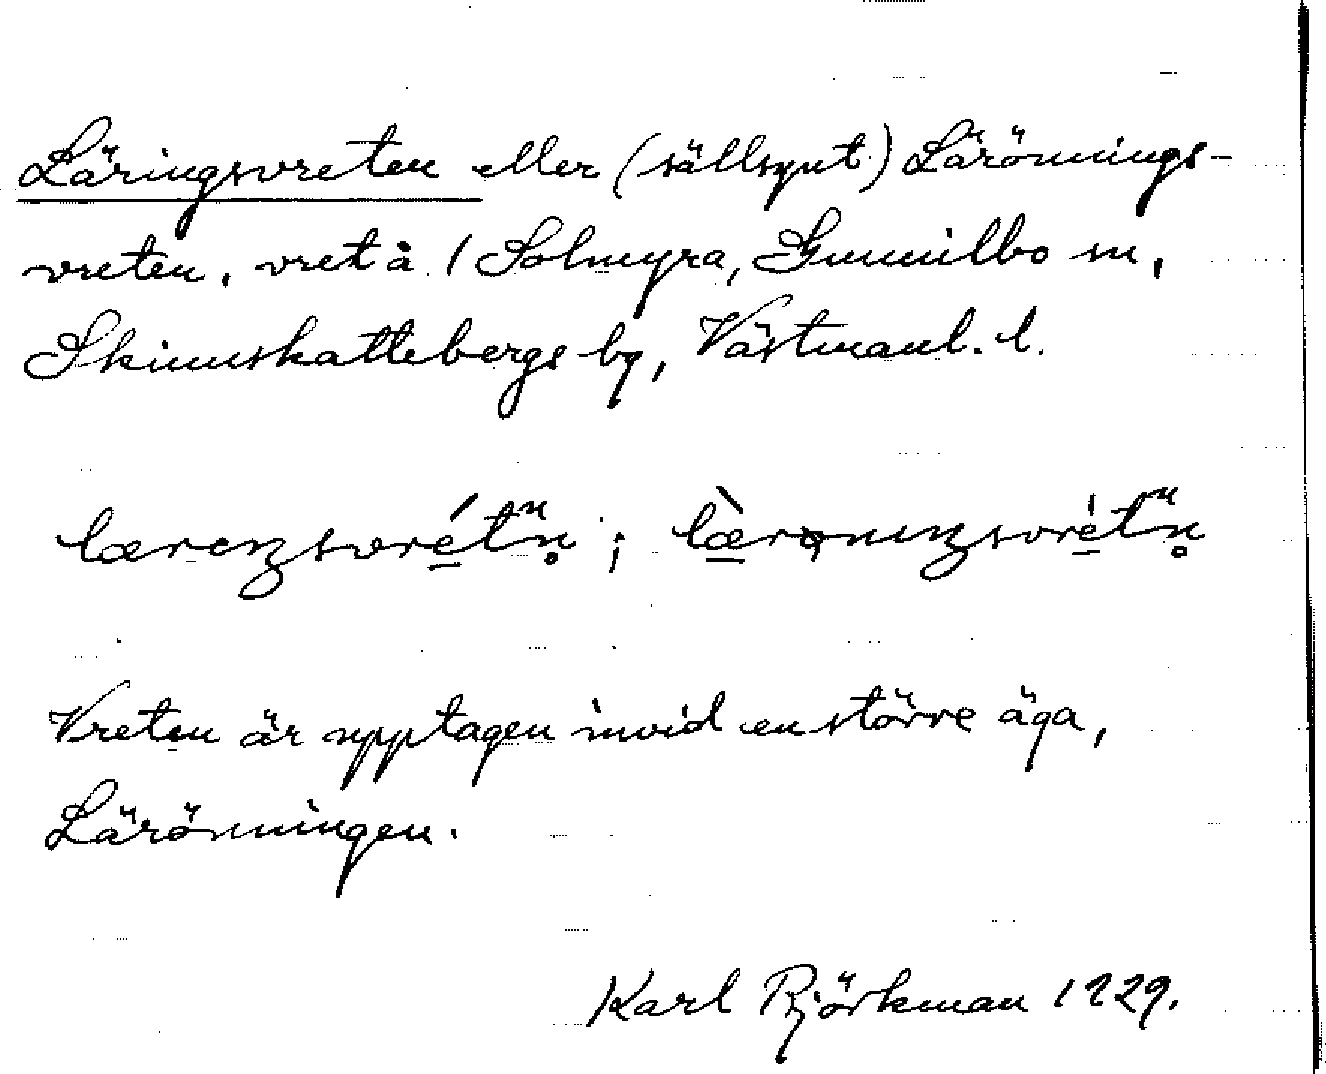 Läringsvreten eller (sällsynt) Lärönnings-
vreten, vret å 1 Solmyra, Gunnilbo sn,
Skinnskattebergs bg, Västmanl. l.
Vreten är upptagen invid en större äga,
Lärönningen.
Karl Björkman 1929.